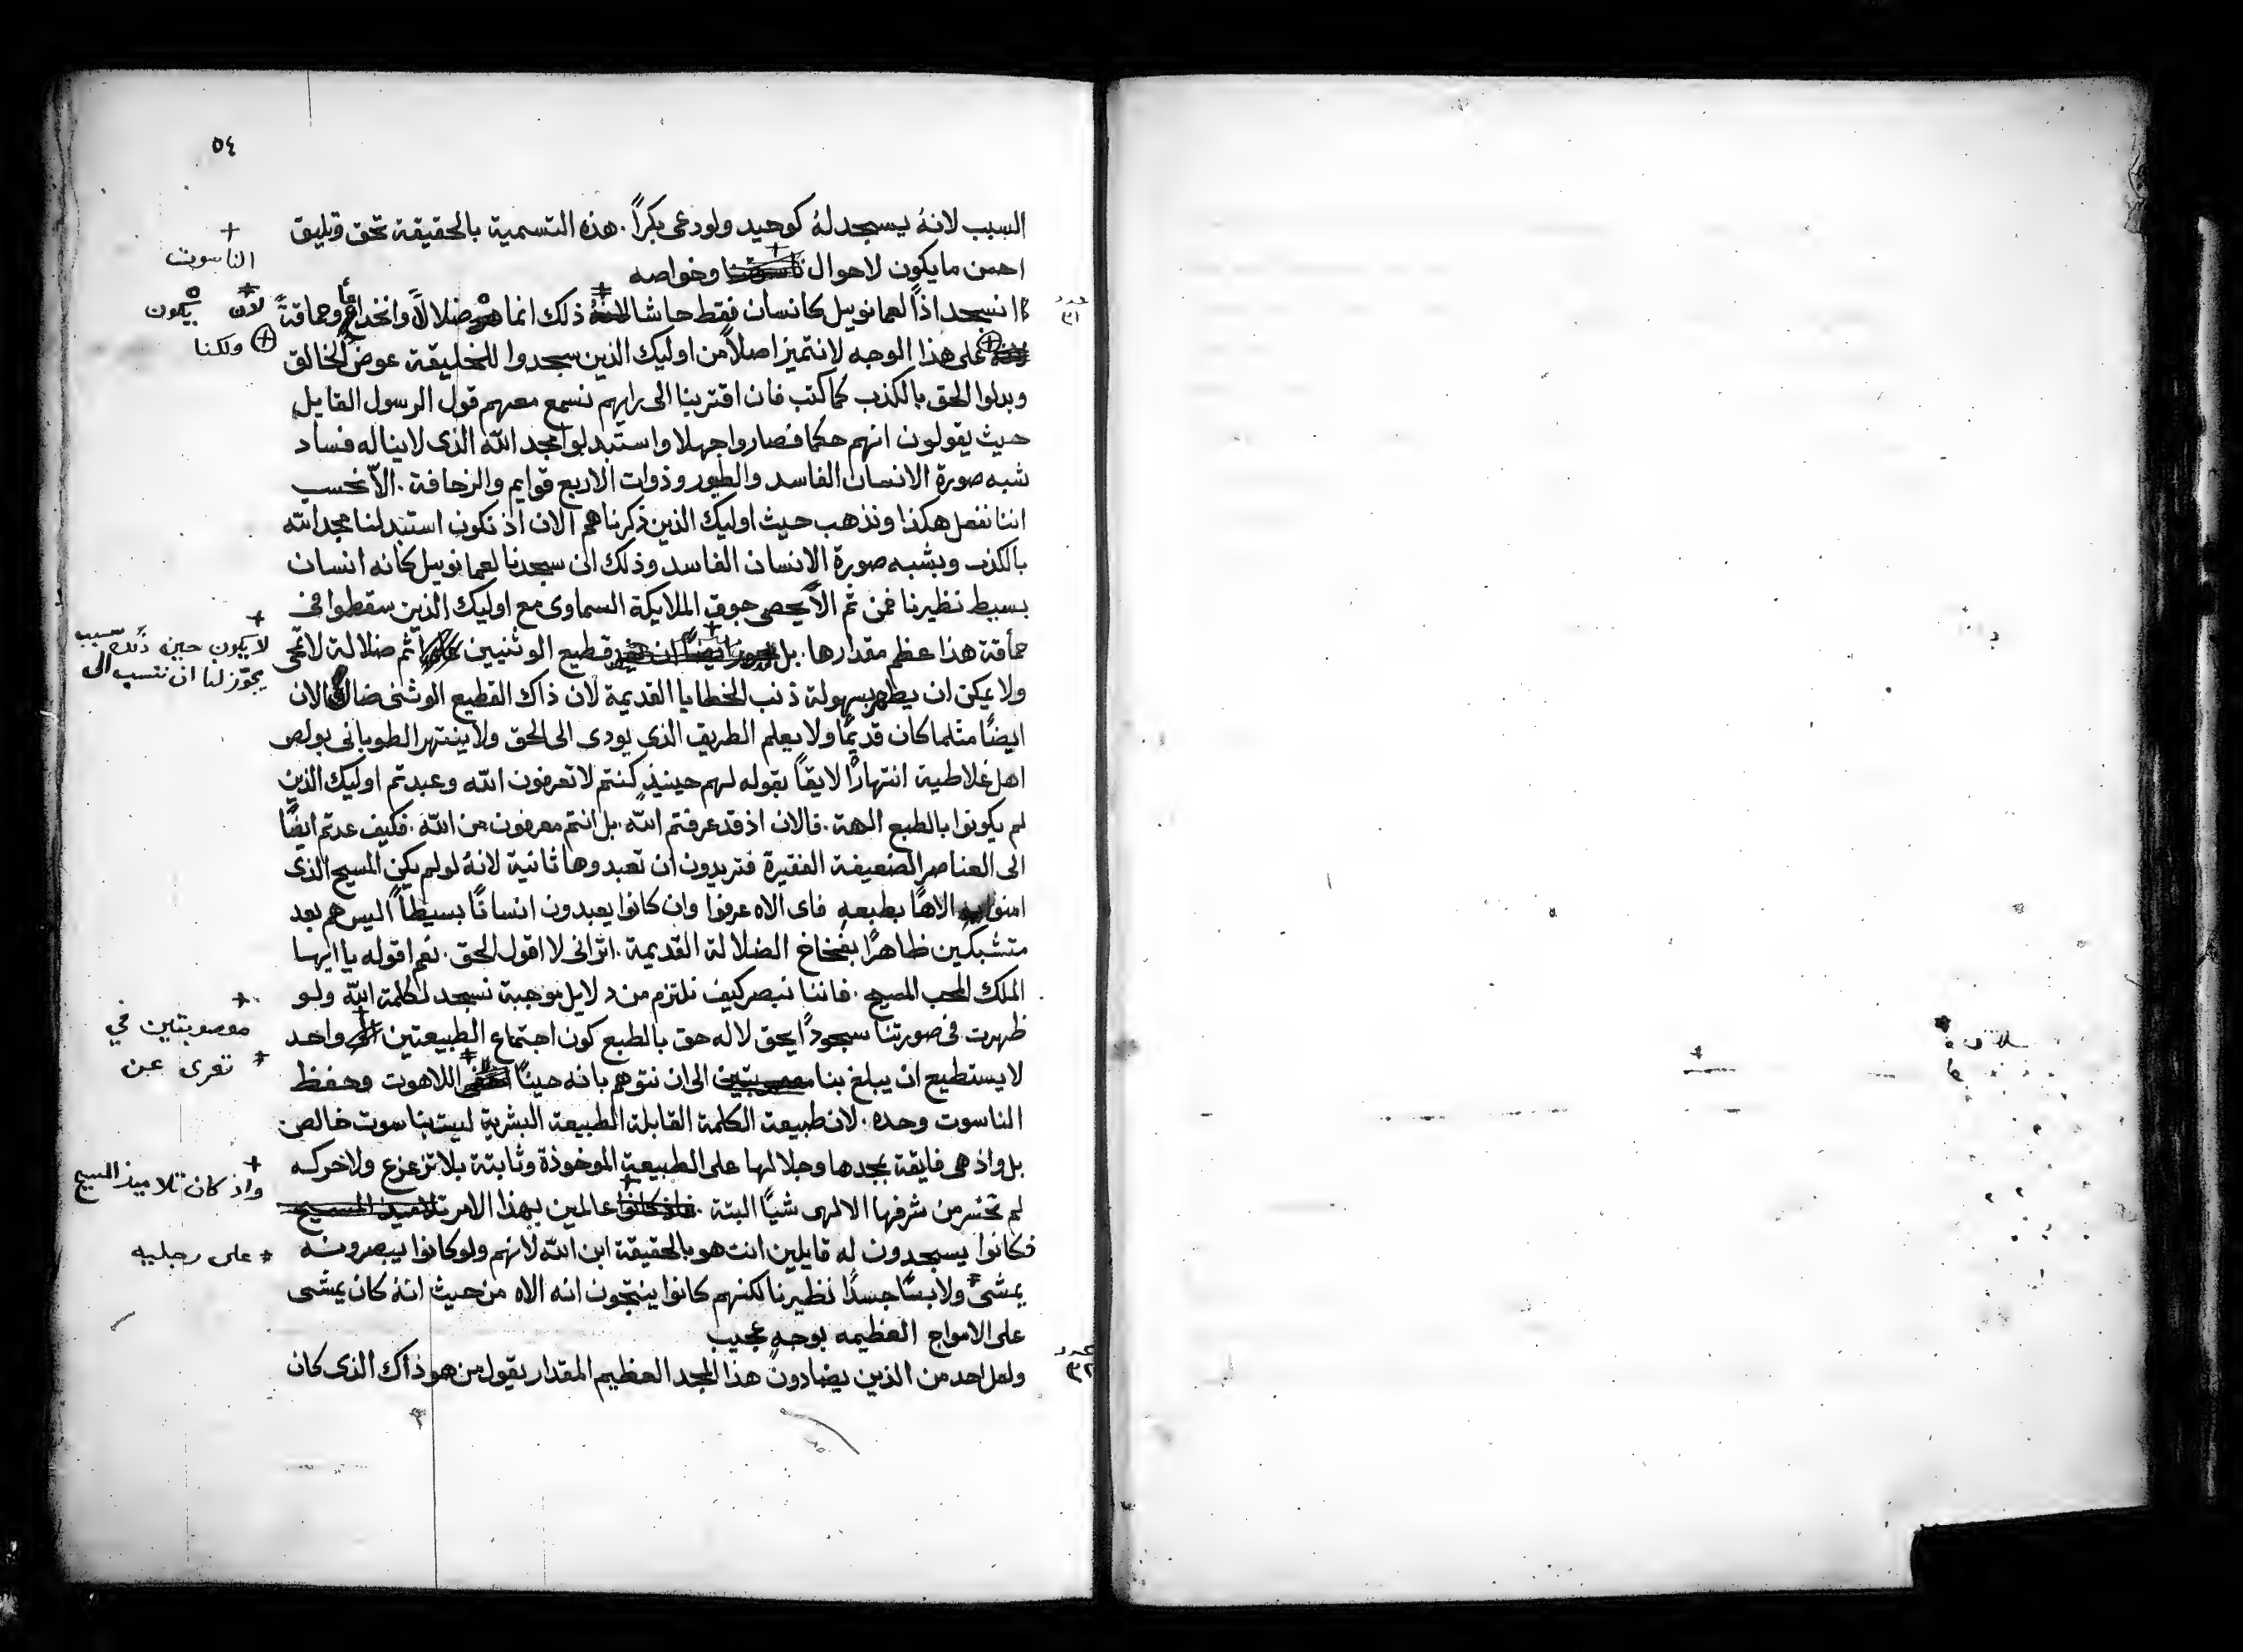 ٥٤
السبب لانهُ يسجد لهُ كوحيد ولو دعى بكراً. هذه التسمية بالحقيقة تحق وتليق
احسن ما يكون لاحوال ناسوتنا وخواصه
+ الناسوت
عدد ٣١
انسجد اذاً لعمانوييل كانسان فقط حاشا لانهُ ذلك انما هو ضلالاً وانخداعاً وحماقةً
لان يكون
على هذا الوجه لا نتميز اصلاً من اوليك الذين سجدوا للخليقة عوض الخالق
ولكنا
وبدلوا الحق بالكذب كما كتب فان اقتربنا الى رايهم نسمع معهم قول الرسول القايل
حيث يقولون انهم حكما فصاروا جهلا واستبدلوا مجد الله الذى لا يناله فساد
شبه صورة الانسان الفاسد والطيور وذوات الاربع قوايم والزحافة. الا نحسب
اننا نفعل هكذا ونذهب حيث اوليك الذين ذكرناهم الان اذ نكون استبدلنا مجد الله
بالكذب وبشبه صورة الانسان الفاسد وذلك ان سجدنا لعمانوييل كانه انسان
بسيط نظيرنا فمن ثم الا يحصى جوق الملايكة السماوى مع اوليك الذين سقطوا فى
حمأقة هذا عظم مقدارها. بل ايضاً ان قطيع الوثنيين اثم ضلالة لا تمحى
+ لا يكون حين ذلك سبب
يجوز لنا ان ننسب الى
ولا يمكن ان يطهر بسهولة ذنب الخطايا القديمة لان ذاك القطيع الوثنى ضال الان
ايضاً مثلما كان قديماً ولا يعلم الطريق الذى يودى الى الحق ولا ينتهر الطوبانى بولص
اهل غلاطية انتهاراً لايقاً بقوله لهم حينيذٍ كنتم لا تعرفون الله وعبدتم اوليك الذين
لم يكونوا بالطبع الهة. فالان اذ قد عرفتم الله. بل انتم معرفون من الله. فكيف عدتم ايضاً
الى العناصر الضعيفة الفقيرة فتريدون ان تعبدوها ثانية لانهُ لو لم يكن المسيح الذى
امنوا به الاهاً بطبعهِ فاى الاه عرفوا وان كانوا يعبدون انساناً بسيطاً اليس هم بعد
متشبكين ظاهراً بفخاخ الضلالة القديمة. اترانى لا اقول الحق. نعم اقوله يا ايها
الملك المحب المسيح. فاننا نبصر كيف نلتزم من دلايل موجبة نسجد لكلمة الله ولو
ظهرت فى صورتنا سجوداً يحق لاله حق بالطبع كون اجتماع الطبيعتين الى واحد
+ معصوبتين في
لا يستطيع ان يبلغ بنا معصوبتين الى ان نتوهم بانه حيناً اللاهوت وحفظ
تعرى عن
الناسوت وحده. لان طبيعة الكلمة القابلة الطبيعة البشرية ليست بناسوت خالص
بل واذ هى فايقة بمجدها وجلالها على الطبيعة الموخوذة وثابتة بلا تزعزع ولا حركه
لم تخسر من شرفها الالهى شياً البتة. فاذ كانوا عالمين بهذا الامر تلاميذ المسيح
+ واذ كان تلاميذ المسيح
فكانوا يسجدون له قايلين انت هو بالحقيقة ابن الله لانهم ولو كانوا يبصرونه
على رجليه
يمشى ولابساً جسداً نظيرنا لكنهم كانوا ينتجون انه الاه من حيث انهُ كان يمشى
على الامواج العظيمه بوجهٍ عجيب
عدد ٣٢
ولعل احد من الذين يضادون هذا المجد العظيم المقدار يقول من هو ذاك الذى كان